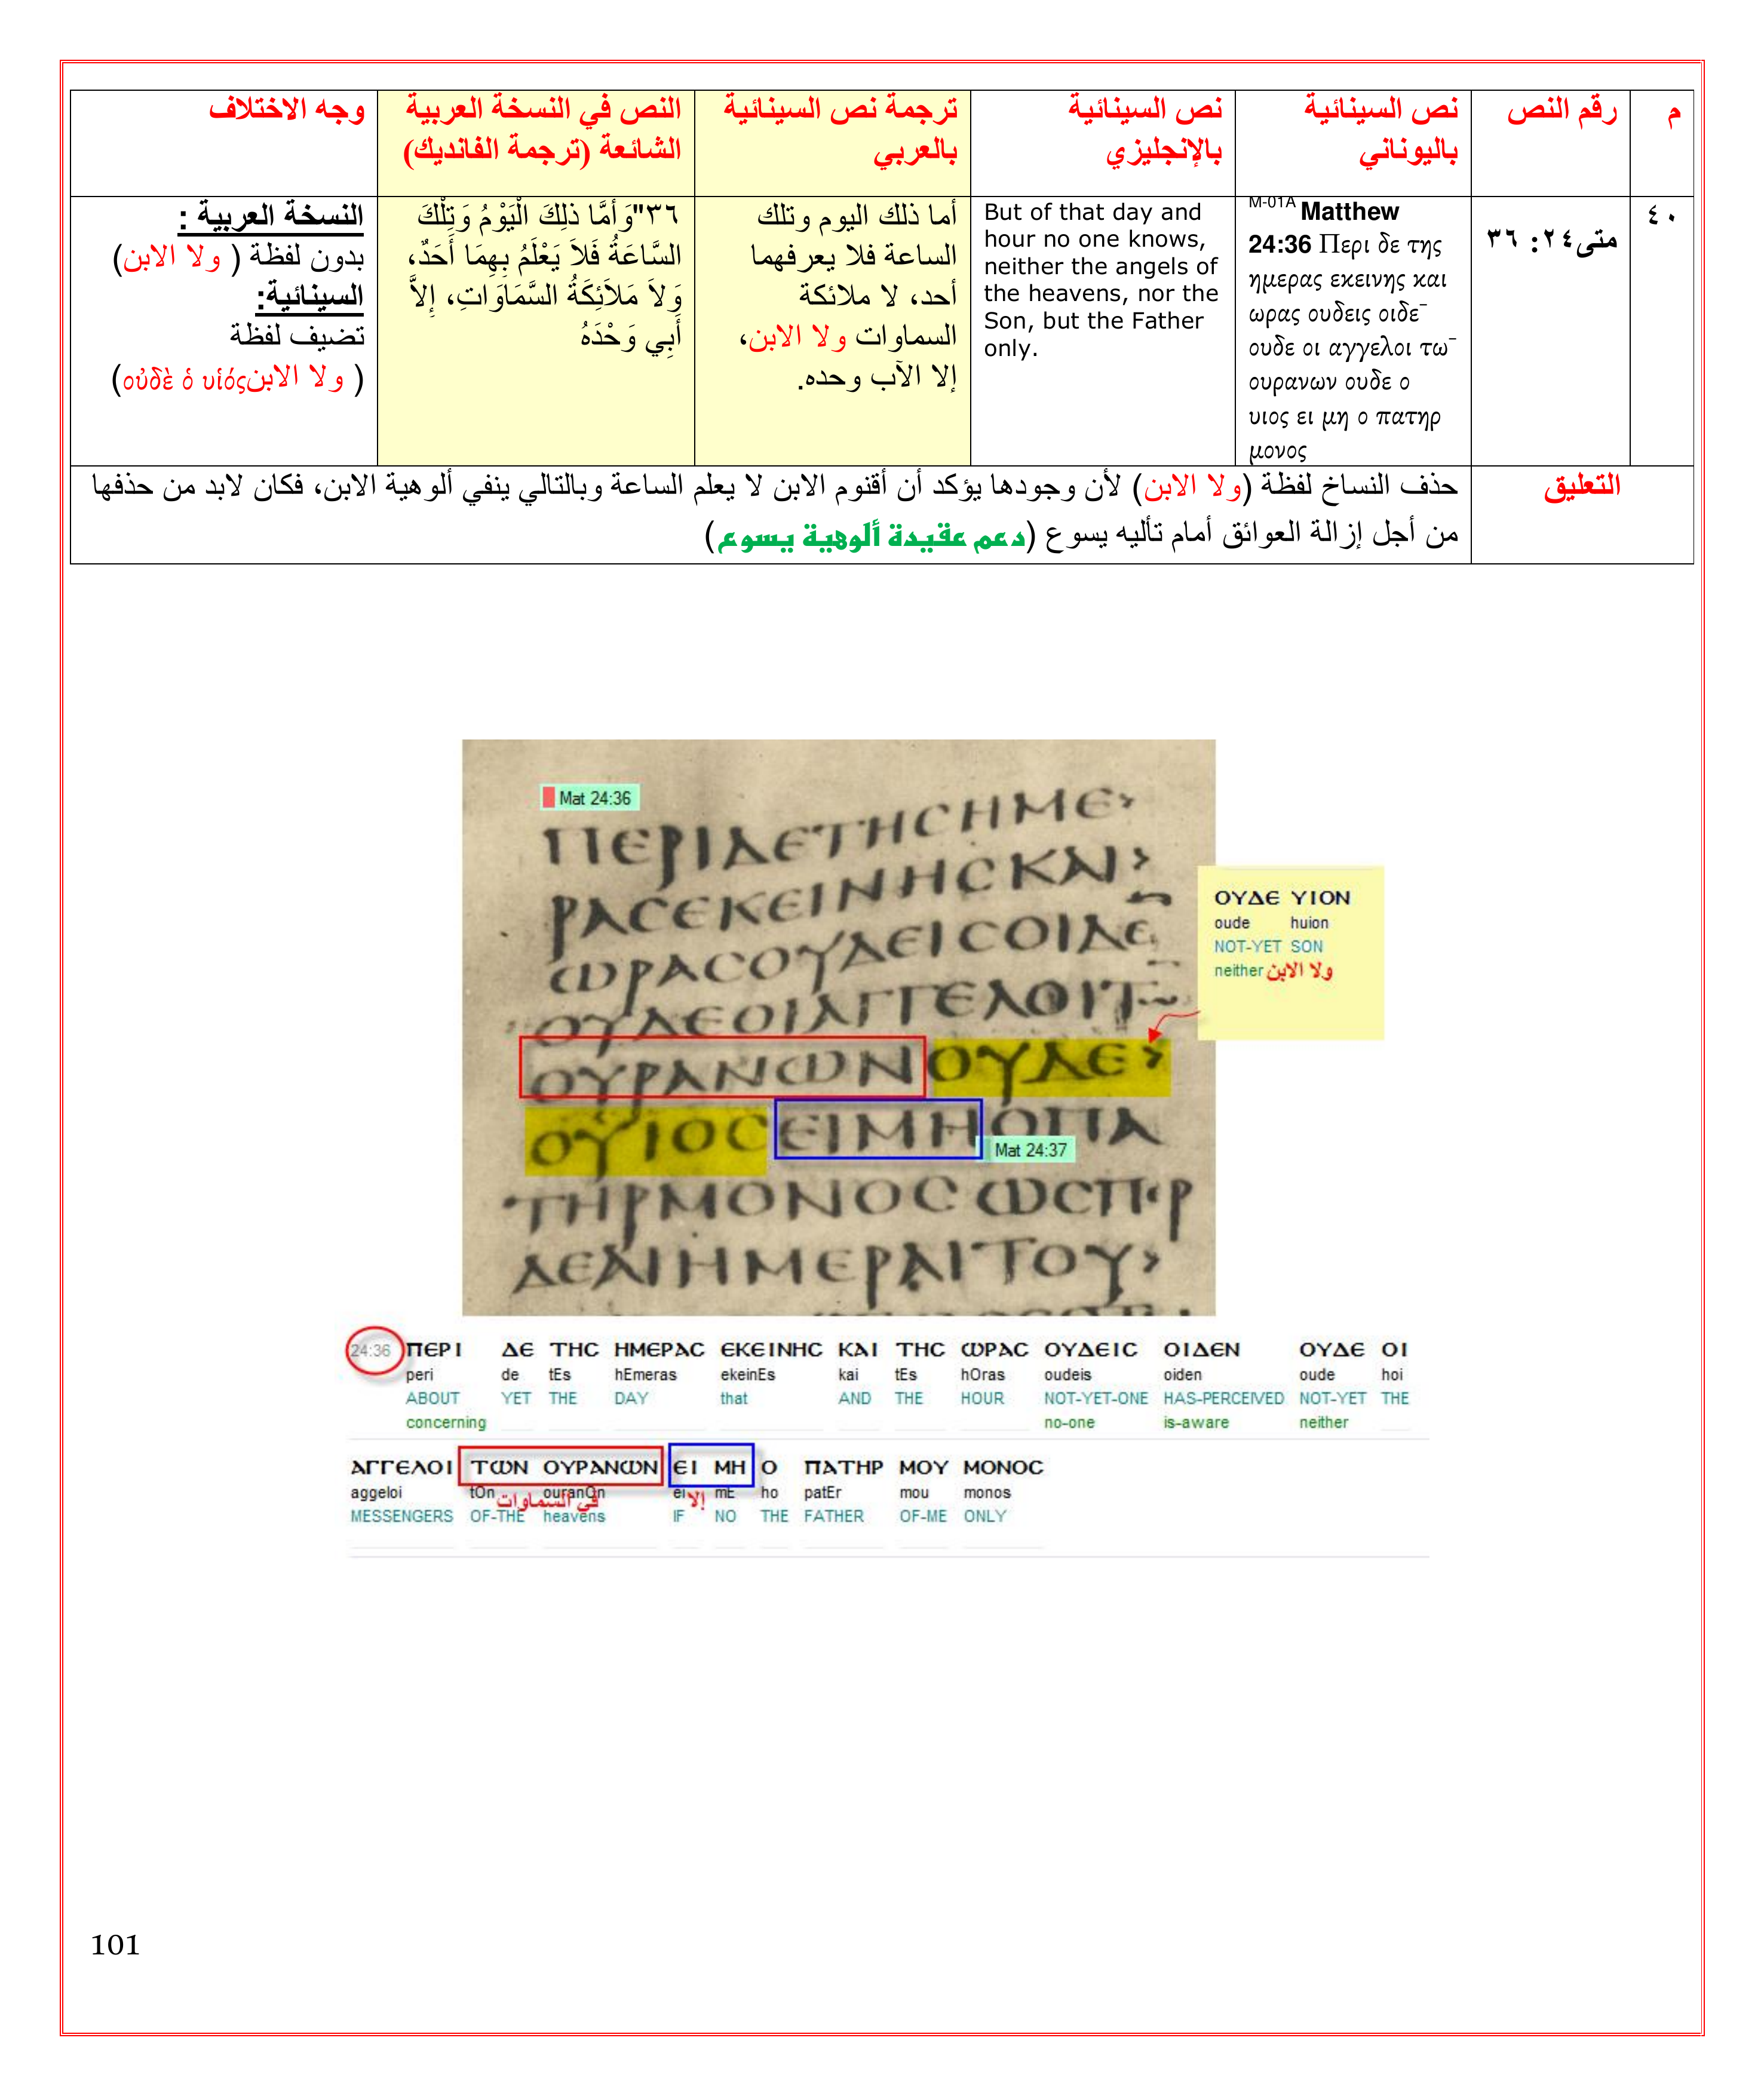 م
رقم النص
نص السينائية
باليوناني
نص السينائية
بالإنجليزي
ترجمة نص السينائية
بالعربي
النص في النسخة العربية
الشائعة (ترجمة الفانديك)
وجه الاختلاف
٤٠
متى٢٤: ٣٦
M-01A Matthew
24:36 Περι δε της
ημερας εκεινης και
ωρας ουδεις οιδε¯
ουδε οι αγγελοι τω¯
ουρανων ουδε ο
υιος ει μη ο πατηρ
μονος
But of that day and
hour no one knows,
neither the angels of
the heavens, nor the
Son, but the Father
only.
أما ذلك اليوم وتلك
الساعة فلا يعرفهما
أحد، لا ملائكة
السماوات ولا الابن،
إلا الآب وحده.
٣٦"وَأَمَّا ذلِكَ الْيَوْمُ وَتِلْكَ
السَّاعَةُ فَلاَ يَعْلَمُ بِهِمَا أَحَدٌ،
وَلاَ مَلاَئِكَةُ السَّمَاوَاتِ، إِلاَّ
أَبِي وَحْدَهُ
النسخة العربية :
بدون لفظة ( ولا الابن)
السينائية:
تضيف لفظة
( ولا الابنοὐδὲ ὁ υἱός)
التعليق
حذف النساخ لفظة (ولا الابن) لأن وجودها يؤكد أن أقنوم الابن لا يعلم الساعة وبالتالي ينفي ألوهية الابن، فكان لابد من حذفها
من أجل إزالة العوائق أمام تأليه يسوع (دعم عقيدة ألوهية يسوع)
Mat 24:36
ΠΕΡΙΔΕΤΗϹΗΜΕ›
ΡΑϹΕΚΕΙΝΗϹΚΑΙ›
ΩΡΑϹΟΥΔΕΙϹΟΙΔΕ
ΟΥΔΕΟΙΑΓΓΕΛΟΙΤ
ΟΥΡΑΝΩΝΟΥΔΕ›
ΟΥΙΟϹΕΙΜΗΟΠΑ
Mat 24:37
ΤΗΡΜΟΝΟϹΩϹΠΕΡ
ΔΕΑΙΗΜΕΡΑΙΤΟΥ›
ΟΥΔΕ ΥΙΟΝ
oude huion
NOT-YET SON
neither ولا الابن
24:36 ΠΕΡΙ ΔΕ ΤΗϹ ΗΜΕΡΑϹ ΕΚΕΙΝΗϹ ΚΑΙ ΤΗϹ ΩΡΑϹ ΟΥΔΕΙϹ ΟΙΔΕΝ ΟΥΔΕ ΟΙ
peri de tEs hEmeras ekeinEs kai tEs hOras oudeis oiden oude hoi
ABOUT YET THE DAY that AND THE HOUR NOT-YET-ONE HAS-PERCEIVED NOT-YET THE
concerning no-one is-aware neither
ΑΓΓΕΛΟΙ ΤΩΝ ΟΥΡΑΝΩΝ ΕΙ ΜΗ Ο ΠΑΤΗΡ ΜΟΥ ΜΟΝΟϹ
aggeloi tOn ouranOn ei mE ho patEr mou monos
في السماوات إلا
MESSENGERS OF-THE heavens IF NO THE FATHER OF-ME ONLY
101